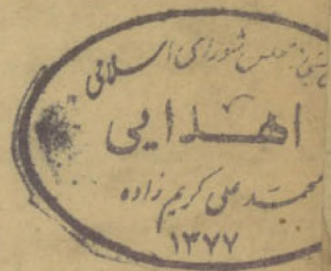 مجلس شورای اسلامی
اهدایی
محمد علی کریم زاده
۱۳۷۷